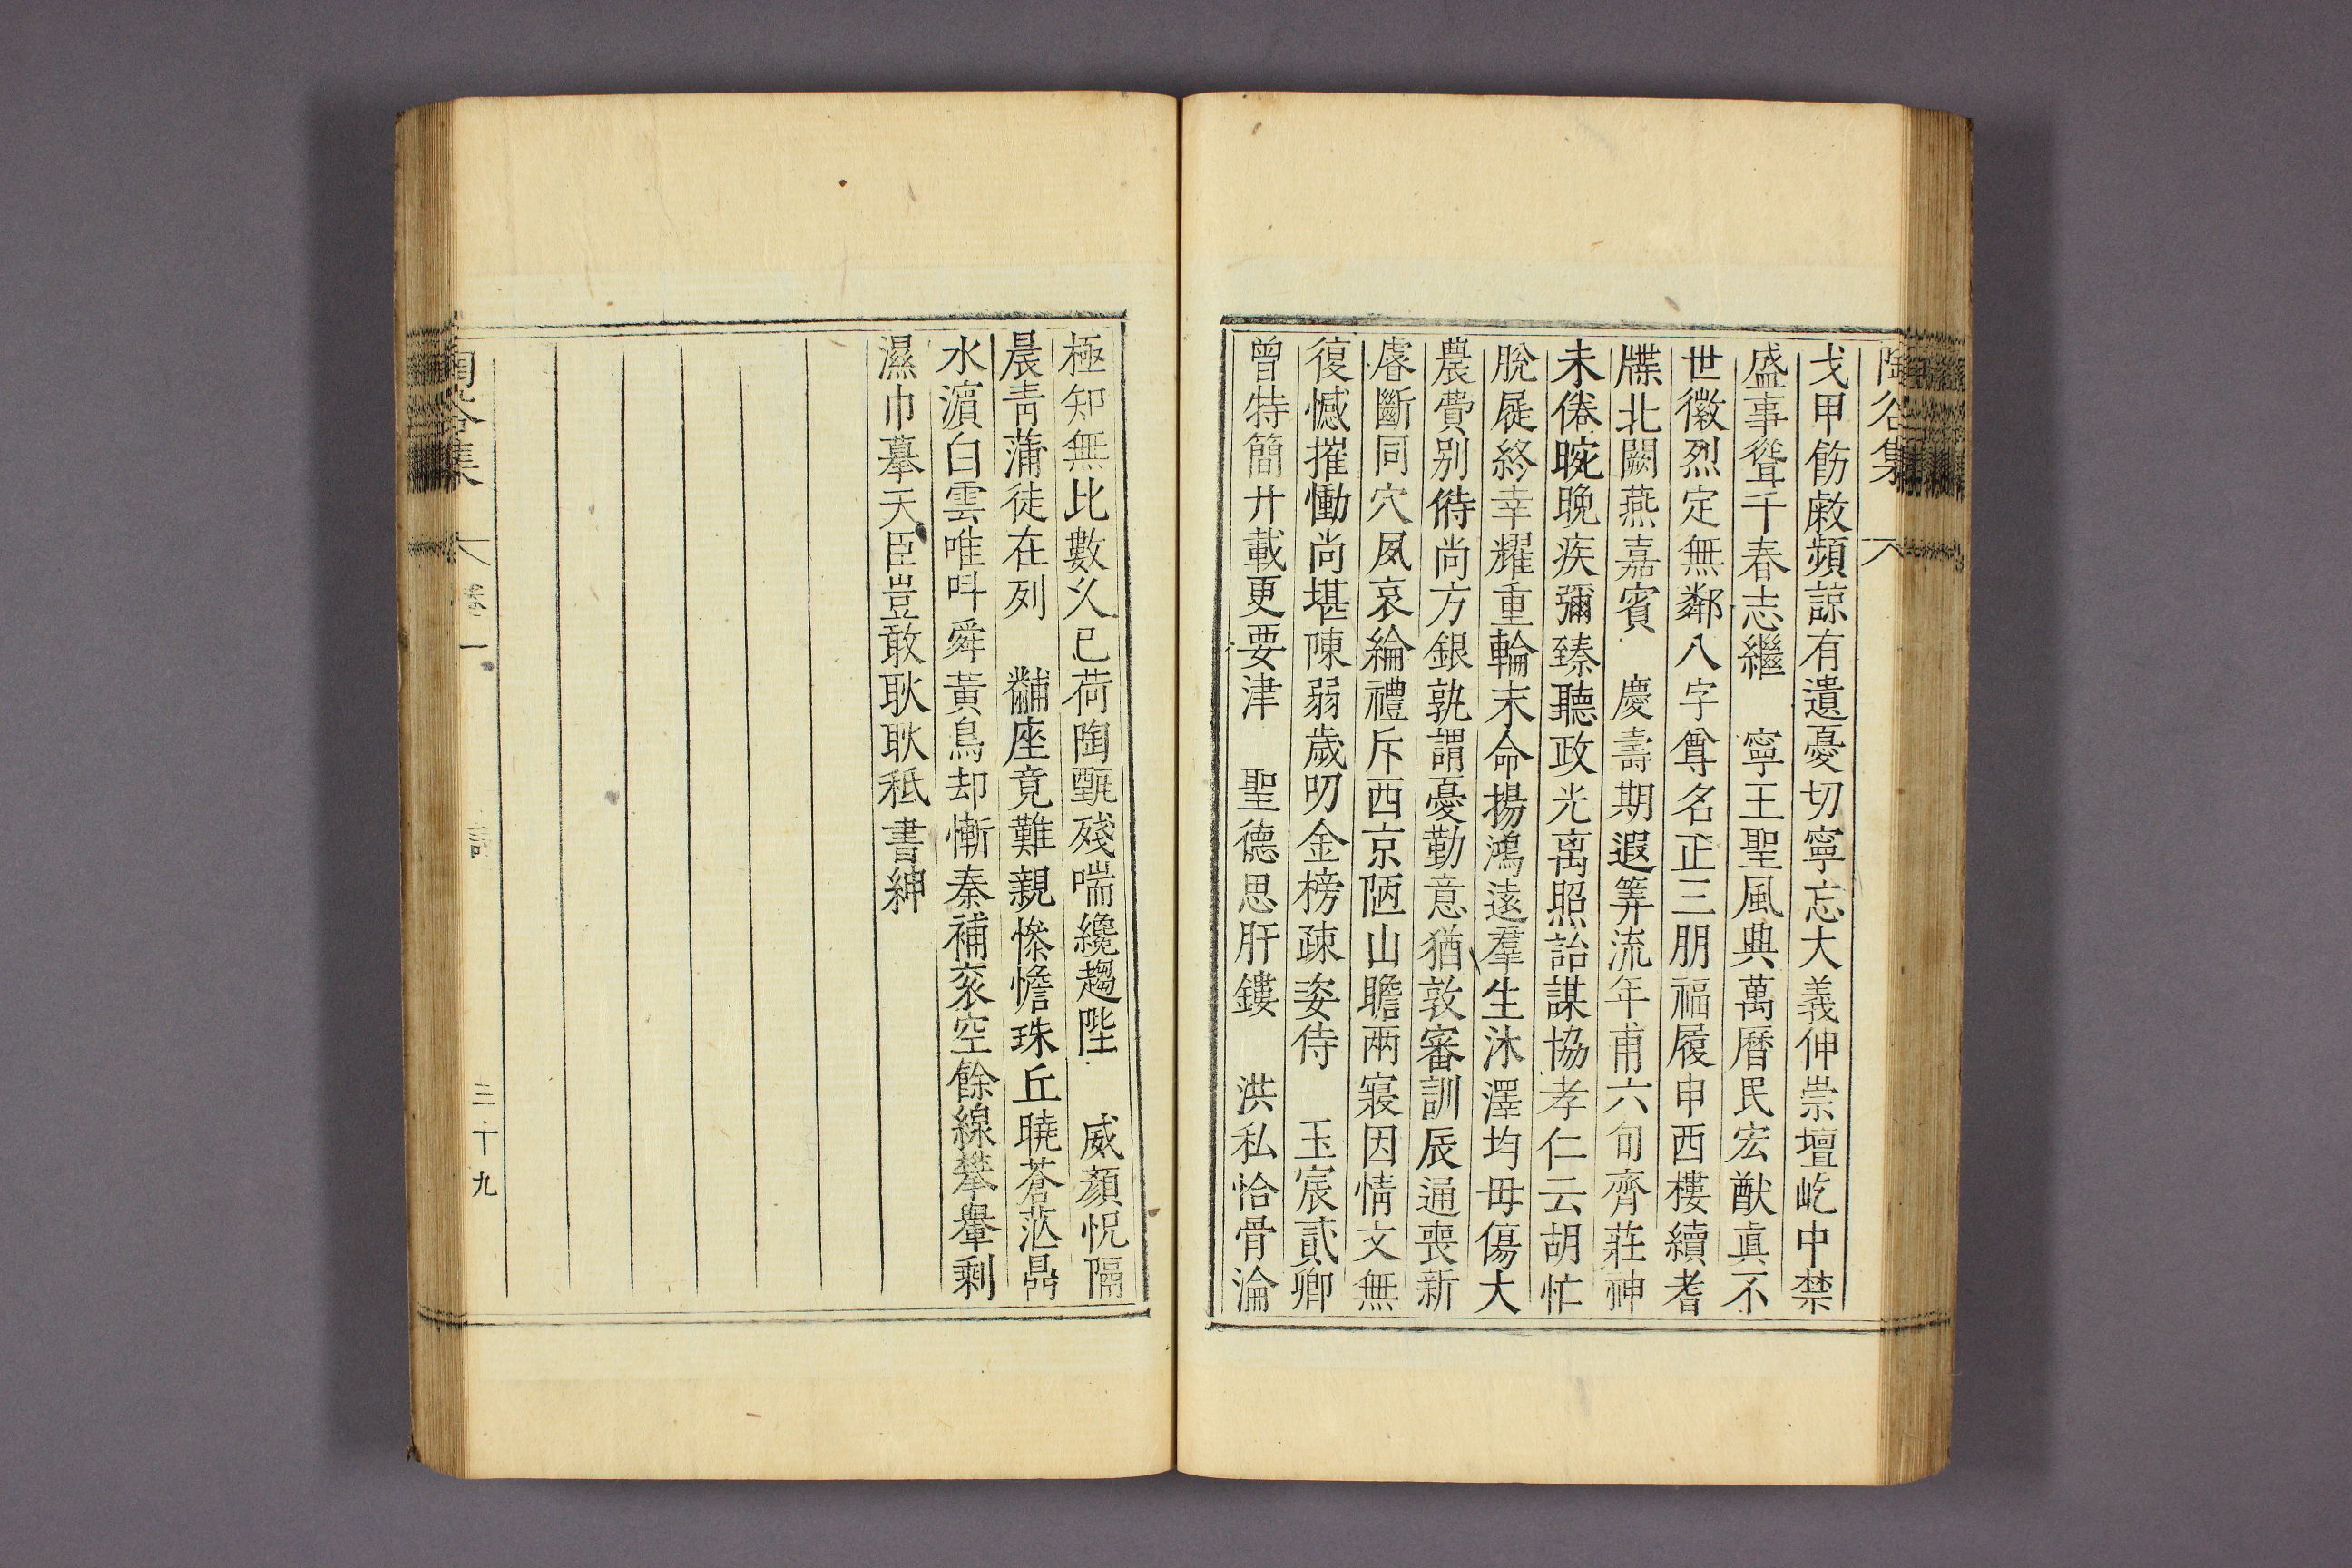 陶谷集
戈甲飭𢿱頻諒有遺憂切寧忘大義伸崇壇屹中禁
盛事聳千春志繼 寧王聖風典萬曆民宏猷眞不
世徽烈定無鄰八字尊名正三朋福履申西樓續耆
牒北闕燕嘉賓 慶壽期遐筭流年甫六旬齊莊神
未倦晼晚疾彌臻聽政光离照詒謀協孝仁云胡忙
脫屣終幸耀重輪末命揚鴻遠羣生沐澤均毋傷大
農費别偫尚方銀孰謂憂勤意猶敦審訓辰通喪新
睿斷同穴夙哀綸禮斥西京陋山瞻兩寢因情文無
復憾摧慟尚堪陳弱歲叨金榜疎姿侍 玉宸貳卿
曾特簡廾載更要津 聖德思肝鏤 洪私恰骨淪
極知無比數久已荷陶甄殘喘纔趨陛 威顏怳隔
晨靑蒲徒在列 黼座竟難親慘憺珠丘曉蒼茫鼎
水濵白雲唯呌舜黃鳥却慚秦補衮空餘線攀轝剩
濕巾摹天臣豈敢耿耿秪書紳
陶谷集
卷一
詩
三十九